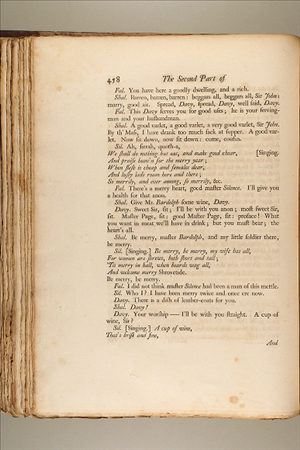 458 The Second Part of
Fal. You have here a goodly dwelling, and a rich.
Shal. Barren, barren, barren: beggars all, beggars all, Sir John:
marry, good air. Spread, Davy, spread, Davy, well said, Davy.
Fal. This Davy serves you for good uses; he is your serving-
man and your husbandman.
Shal. A good varlet, a good varlet, a very good varlet, Sir John.
By th' Mass, I have drank too much sack at supper. A good var-
let. Now sit down, now sit down: come, cousin.
Sil. Ah, sirrah, quoth-a,
We shall do nothing but eat, and make good chear, [Singing.
And praise heav'n for the merry year;
When flesh is cheap and females dear,
And lusty lads roam here and there;
So merrily, and ever among, so merrily, &c.
Fal. There's a merry heart, good master Silence. I'll give you
a health for that anon.
Shal. Give Mr. Bardolph some wine, Davy.
Davy. Sweet Sir, sit; I'll be with you anon; most sweet Sir,
sit. Master Page, sit: good Master Page, sit: proface! What
you want in meat we'll have in drink; but you must bear; the
heart's all.
Shal. Be merry, master Bardolph, and my little soldier there,
be merry.
Sil. [Singing.] Be merry, be merry, my wife has all,
For women are shrews, both short and tall;
'Tis merry in hall, when beards wag all,
And welcome merry Shrovetide.
Be merry, be merry.
Fal. I did not think master Silence had been a man of this mettle.
Sil. Who I? I have been merry twice and once ere now.
Davy. There is a dish of leather-coats for you.
Shal. Davy?
Davy. Your worship — I'll be with you straight. A cup of
wine, Sir?
Sil. [Singing.] A cup of wine,
That's brisk and fine,
And